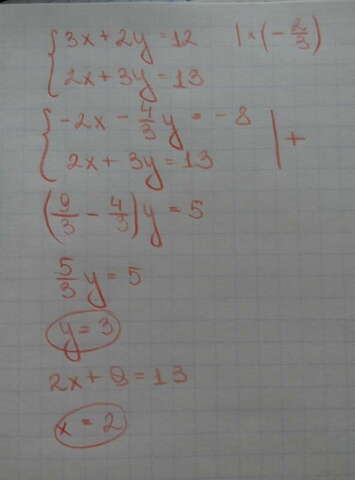 { 3x + 2y = 12 | × (- 2/3)
2x + 3y = 13
{ -2x - 4/3 y = - 8 | +
2x + 3y = 13
(9/3 - 4/3) y = 5
5/3 y = 5
y = 3
2x + 9 = 13
x = 2